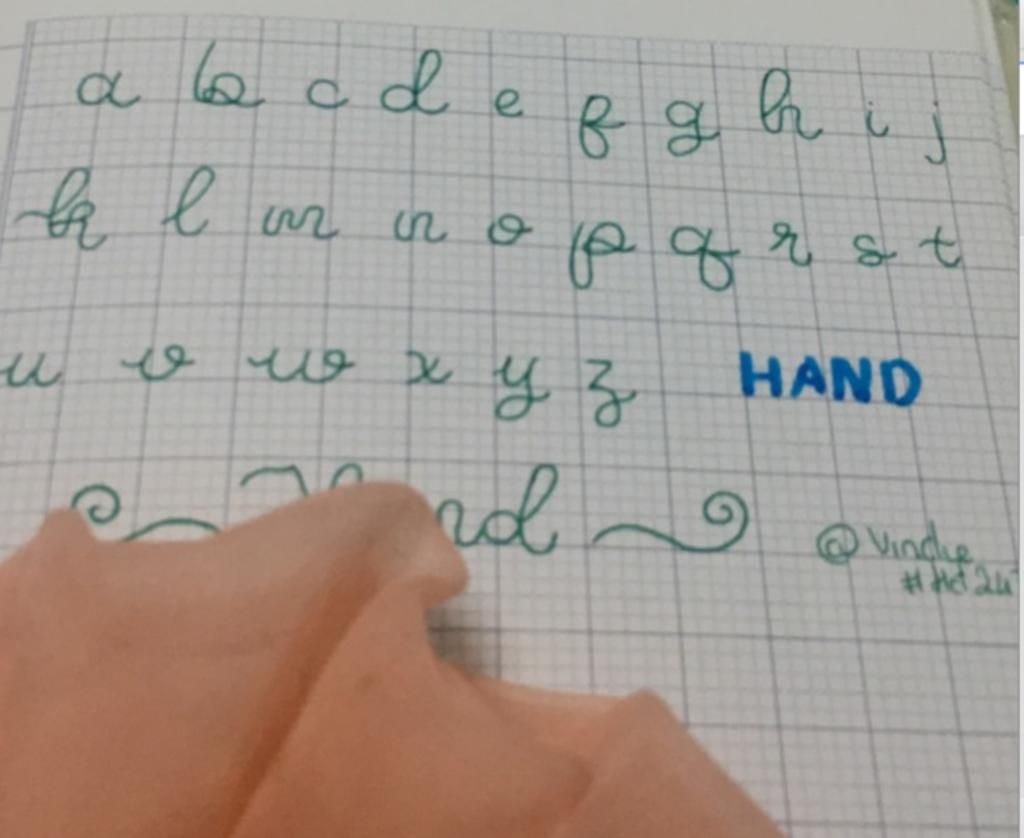 a b c d e f g h i j
k l m n o p q r s t
u v w x y z HAND
@Vindie